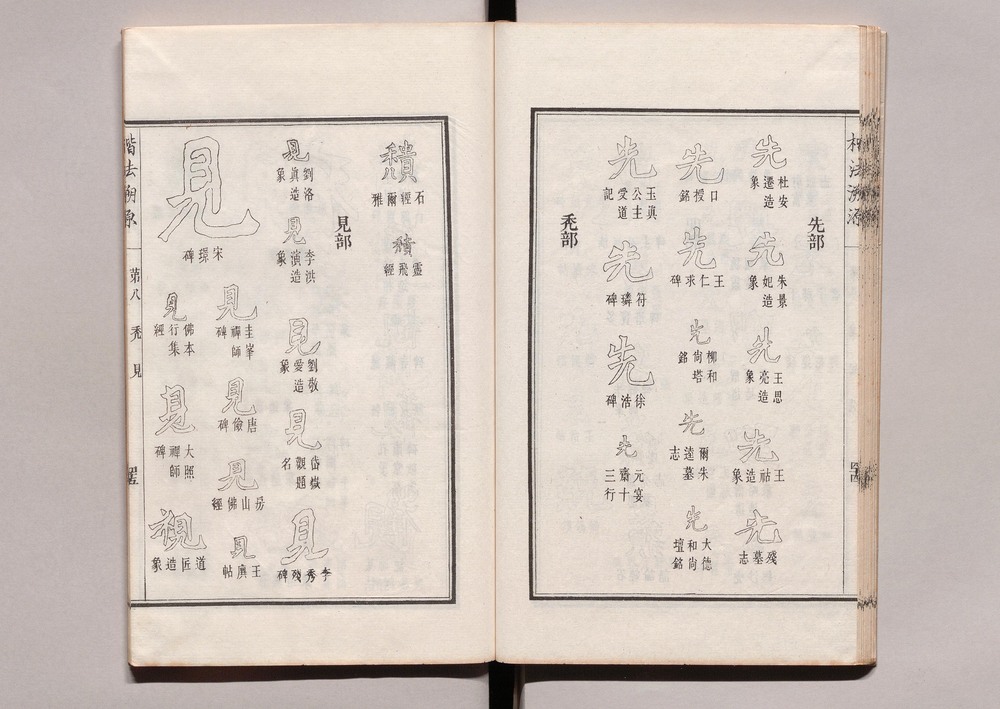 先部
先 杜安遷造象
先 朱景妃造象
先 王思亮造象
先 王祜造象
先 殘墓志
先 口授銘
先 王仁求碑
先 柳和尚塔銘
先 爾朱逵墓志
先 大德和尚壇銘
先 玉真公主受道記
先 符璘碑
先 徐浩碑
先 元宴齋十三行
禿部
穨 石經爾雅
穨 靈飛經
見部
見 劉洛真造象
見 李洪演造象
見 劉敬愛造象
見 岱嶽觀題名
見 李秀殘碑
見 宋璟碑
見 圭峯禪師碑
見 唐儉碑
見 房山佛經
見 王廙帖
見 佛本行集經
見 大照禪師碑
視 道匠造象
楷法溯源 第八 禿 見